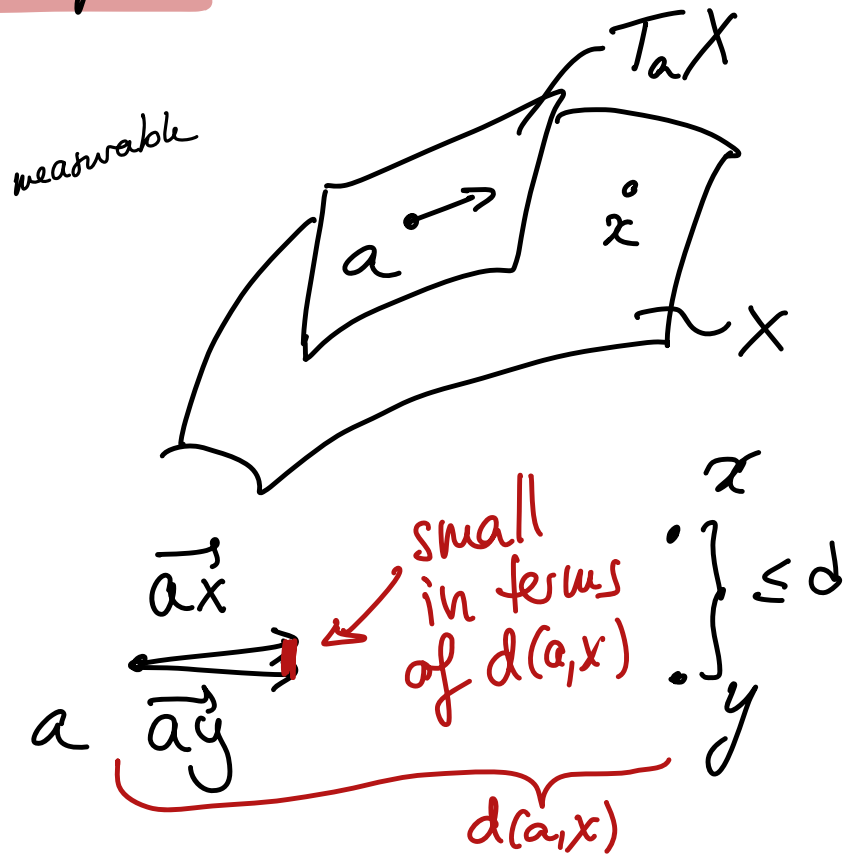 T_aX
measurable
a
x
X
x
small
in terms
of d(a,x)
\overrightarrow{ax}
≤ d
a
\overrightarrow{ay}
y
d(a,x)